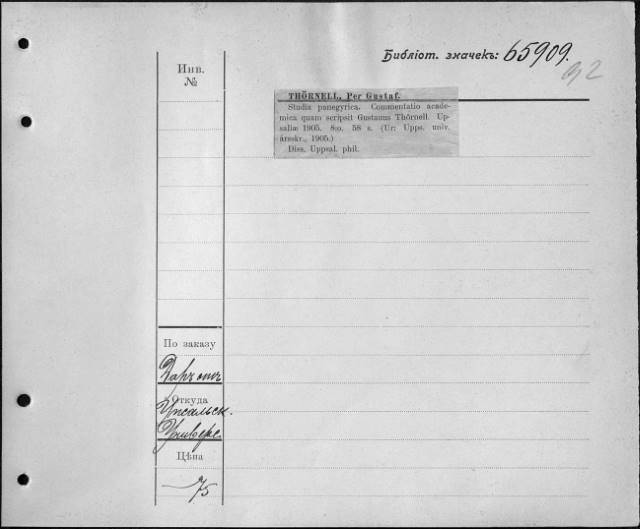 Библіот. значекъ: 65909.
32
Инв.
№
THÖRNELL, Per Gustaf.
Studia panegyrica. Commentatio acade-
mica quam scripsit Gustauus Thörnell. Up-
saliæ 1905. 8:o. 58 s. (Ur: Upps. univ.
årsskr., 1905.)
Diss. Uppsal. phil.
По заказу
Даръ отъ
Откуда
Упсальск.
Универс.
Цѣна
— 75